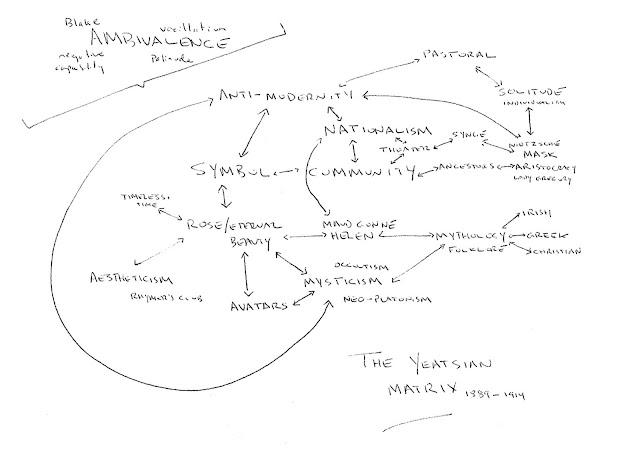 Blake
vacillation
AMBIVALENCE
negative
capability
Palinode
PASTORAL
ANTI-MODERNITY
SOLITUDE
INDIVIDUALISM
NATIONALISM
SYNGE
NIETZSCHE
THEATER
MASK
SYMBOL
COMMUNITY
ANCESTORS
ARISTOCRACY
LADY GREGORY
TIMELESS,
TIME
ROSE/ETERNAL
BEAUTY
MAUD GONNE
HELEN
MYTHOLOGY
FOLKLORE
IRISH
GREEK
CHRISTIAN
AESTHETICISM
RHYMER'S CLUB
OCCULTISM
MYSTICISM
NEO-PLATONISM
AVATARS
THE YEATSIAN
MATRIX 1889-1914